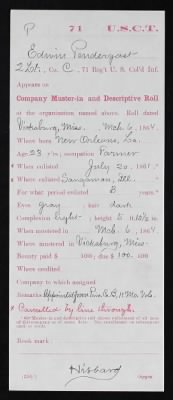 P 71 U.S.C.T.
Edwin Pendergast
2 Lt., Co. C, 71 Reg't U. S. Col'd Inf.
Appears on
Company Muster-in and Descriptive Roll
of the organization named above. Roll dated
Vicksburg, Miss. Mch. 6, 1864
Where born New Orleans, La.
Age 23 y'rs; occupation Farmer
When enlisted July 20, 1861
Where enlisted Sangamon, Ill.
For what period enlisted 3 years.
Eyes Gray; hair dark
Complexion light; height 5 ft. in.
When mustered in Mch. 6, 1864
Where mustered in Vicksburg, Miss.
Bounty paid $ 100; due $ 100
Where credited
Company to which assigned
Remarks: Appointed from Co. B, 11 Mo. Vols.
* Cancelled by line through.
Book mark:
Hibbard
Copyist.